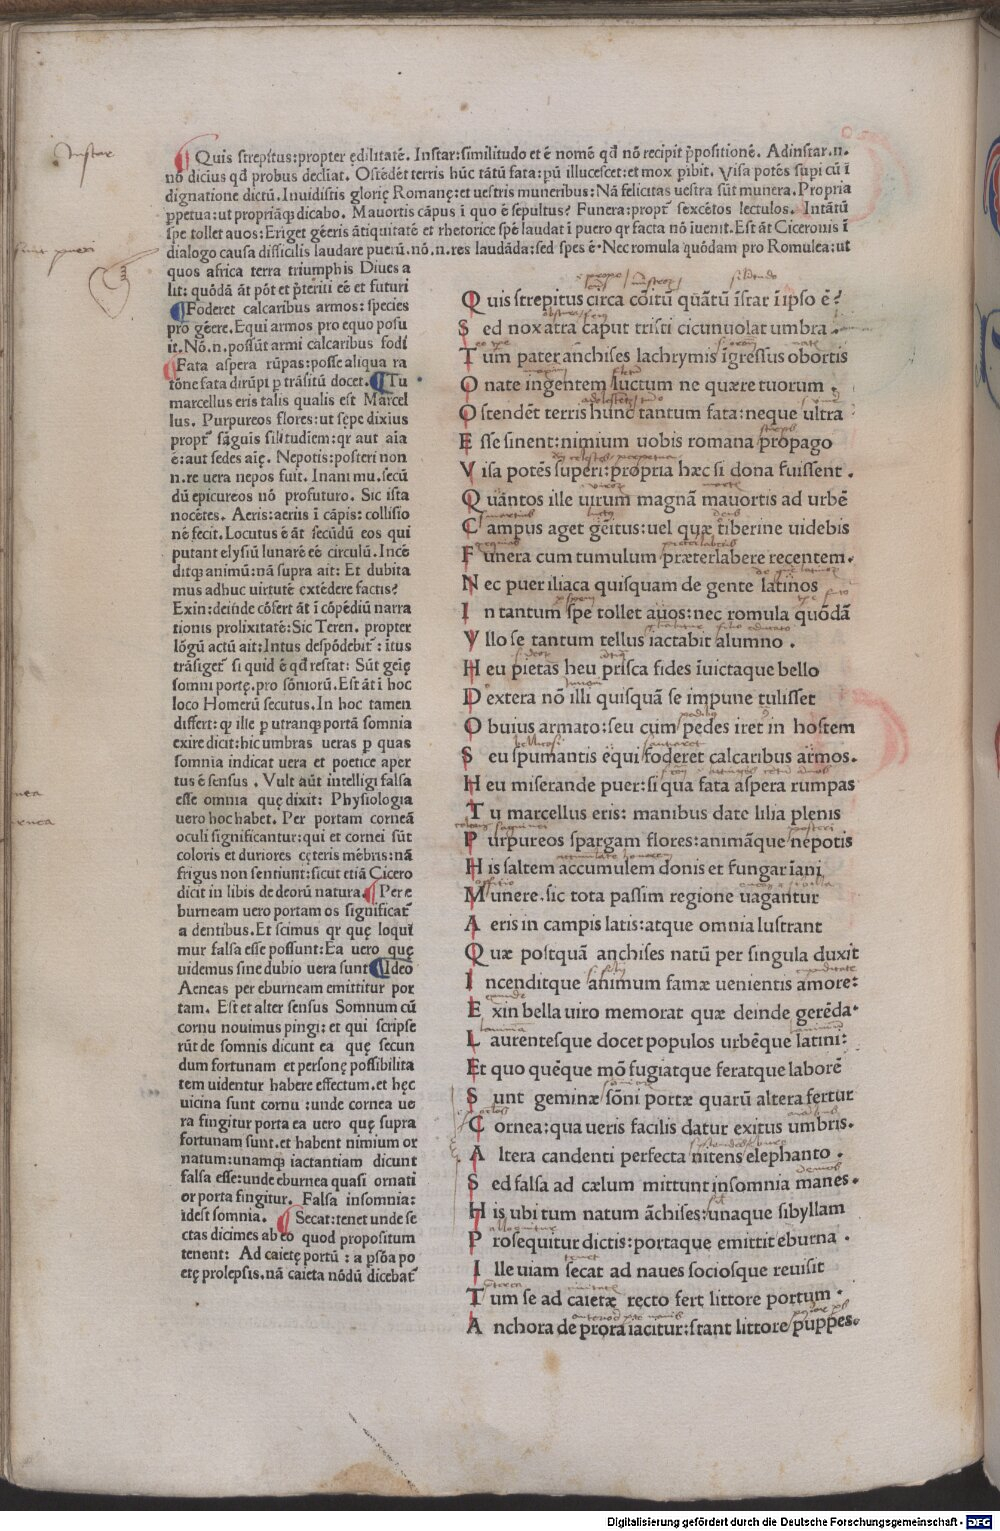 Instar
Quis strepitus:propter ędilitatē. Instar:similitudo et ē nomē qđ nō recipit p̄positionē. Adinstar.n.
nō dicius qđ probus decliat̄. Ostēdēt terris hūc tātū fata:pū illucescet:et mox pibit. Visa potēs supi cū ī
dignatione dictū. Inuidistis glorię Romanę:et uestris muneribus: Nā felicitas uestra sūt munera. Propria
ꝑpetua:ut propriāqꝫ dicabo. Mauortis cāpus ī quo ē sepultus? Funera:propt̄ sexcētos lectulos. Intātū
spe tollet auos:Eriget gēeris ātiquitatē et rhetorice spē laudat ī puero qr facta nō iuenit. Est āt Ciceronis ī
dialogo causa difficilis laudare puerū.nō.n.res laudāda:sed spes ē. Nec romula quōdam pro Romulea:ut
quos africa terra triumphis Diues a
lit: quōdā āt pōt et p̄teriti eē et futuri
Foderet calcaribus armos: species
pro gēere. Equi armos pro equo posu
it. Nō.n.possūt armi calcaribus fodi
Fata aspera rūpas:posse aliqua ra
tōne fata dirūpi ꝑ trāsitū docet. Tu
marcellus eris talis qualis est Marcel
lus. Purpureos flores:ut sępe dixius
propt̄ sāguis silitudiem:qr aut aīa
ē:aut sedes aīę. Nepotis:posteri non
n.re uera nepos fuit. Inani mu.secū
dū epicureos nō profuturo. Sic ista
nocētes. Aeris:aeriis ī cāpis: collisio
nē fecit. Locutus ē āt secūdū eos qui
putant elysiū lunarē eē circulū. Incē
ditqꝫ animū:nā supra ait: Et dubita
mus adhuc uirtutē extēdere factis?
Exin:deinde cōfert āt ī cōpēdiū narra
tionis prolixitatē:Sic Teren. propter
lōgū actū ait: Intus despōdebit̄: ītus
trāsiget̄ si quid ē qđ restat: Sūt geię
somni portę.pro sōniorū. Est āt ī hoc
loco Homerū secutus. In hoc tamen
differt:qꝫ ille ꝑ utranqꝫ portā somnia
exire dicit:hic umbras ueras ꝑ quas
somnia indicat uera et poetice aper
tus ē sensus . Vult aūt intelligi falsa
esse omnia quę dixit: Physiologia
uero hoc habet. Per portam corneā
oculi significantur:qui et cornei sūt
coloris et duriores cęteris mēbris:nā
frigus non sentiunt:sicut etiā Cicero
dicit in libis de deorū natura. Per e
burneam uero portam os significat̄
a dentibus. Et scimus qr quę loqui
mur falsa esse possunt: Ea uero quę
uidemus sine dubio uera sunt Ideo
Aeneas per eburneam emittitur por
tam. Est et alter sensus Somnum cū
cornu nouimus pingi: et qui scripse
rūt de somnis dicunt ea quę secun
dum fortunam et personę possibilita
tem uidentur habere effectum.et hęc
uicina sunt cornu :unde cornea ue
ra fingitur porta ea uero quę supra
fortunam sunt.et habent nimium or
natum:unamqꝫ iactantiam dicunt
falsa esse:unde eburnea quasi ornati
or porta fingitur. Falsa insomnia:
idest somnia. Secat:tenet unde se
ctas dicimes ab eo quod propositum
tenent: Ad caietę portū : a psōa po
etę prolepsis.nā caieta nōdū dicebat̄
Q uis strepitus circa cōitū quātū īstar ī ipso ē?
S ed nox atra caput tristi cicunuolat umbra.
T um pater anchises lachrymis īgressus obortis
O nate ingentem luctum ne quære tuorum .
O stendēt terris hunc tantum fata:neque ultra
E sse sinent:nimium uobis romana propago
V isa potēs superi:propria hæc si dona fuissent .
Q uāntos ille uirum magnā mauortis ad urbē
C ampus aget gēitus:uel quæ tiberine uidebis
F unera cum tumulum præterlabere recentem.
N ec puer iliaca quisquam de gente latinos
I n tantum spe tollet auos:nec romula quōdā
V llo se tantum tellus iactabit alumno .
H eu pietas heu prisca fides īuictaque bello
D extera nō illi quisquā se impune tulisset
O buius armato:seu cum pedes iret in hostem
S eu spumantis equi foderet calcaribus armos.
H eu miserande puer:si qua fata aspera rumpas
T u marcellus eris: manibus date lilia plenis
P urpureos spargam flores:animāque nepotis
H is saltem accumulem donis et fungar īani
M unere.sic tota passim regione uagantur
A eris in campis latis:atque omnia lustrant
Q uæ postquā anchises natū per singula duxit
I ncenditque animum famæ uenientis amore:
E xin bella uiro memorat quæ deinde gerēda.
L aurentesque docet populos urbēque latini:
E t quo quēque mō fugiatque feratque laborē
S unt geminæ sōni portæ quarū altera fertur
C ornea:qua ueris facilis datur exitus umbris.
A ltera candenti perfecta nitens elephanto .
S ed falsa ad cælum mittunt insomnia manes.
H is ubi tum natum āchises:unaque sibyllam
P rosequitur dictis:portaque emittit eburna .
I lle uiam secat ad naues sociosque reuisit
T um se ad caietæ recto fert littore portum.
A nchora de prora iacitur:stant littore puppes.
Digitalisierung gefördert durch die Deutsche Forschungsgemeinschaft - DFG